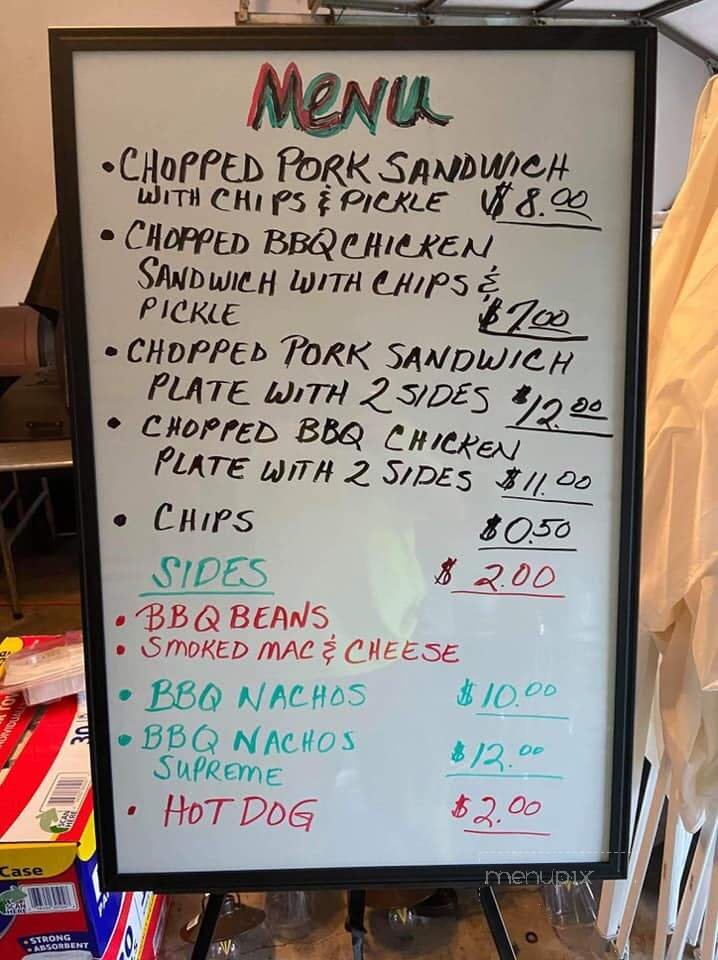 MENU
• CHOPPED PORK SANDWICH
WITH CHIPS & PICKLE $8.00
• CHOPPED BBQ CHICKEN
SANDWICH WITH CHIPS &
PICKLE $7.00
• CHOPPED PORK SANDWICH
PLATE WITH 2 SIDES $12.00
• CHOPPED BBQ CHICKEN
PLATE WITH 2 SIDES $11.00
• CHIPS $0.50
SIDES $2.00
• BBQ BEANS
• SMOKED MAC & CHEESE
• BBQ NACHOS $10.00
• BBQ NACHOS
SUPREME $12.00
• HOT DOG $2.00
menupix
30
SCAN
HERE
Case
SCAN
HERE
• STRONG
• ABSORBENT